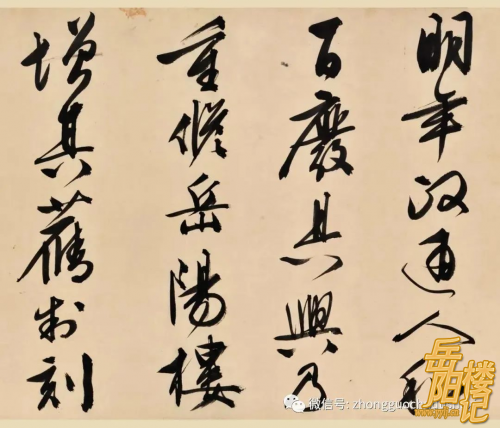 明年政通人和
百廢具興乃
重修岳陽樓
增其舊制刻
岳阳楼记
微信号: